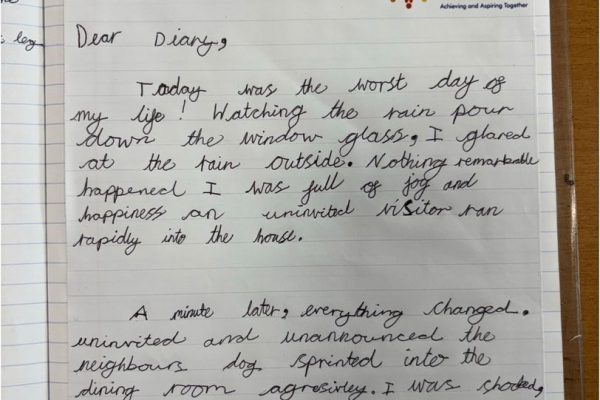 Achieving and Aspiring Together
leg
Dear Diary,
Today was the worst day of
my life! Watching the rain pour
down the window glass, I glared
at the rain outside. Nothing remarkable
happened I was full of joy and
happiness an uninvited visitor ran
rapidly into the house.
A minute later, everything changed.
uninvited and unannounced the
neighbours dog sprinted into the
dining room agresivley. I was shocked,